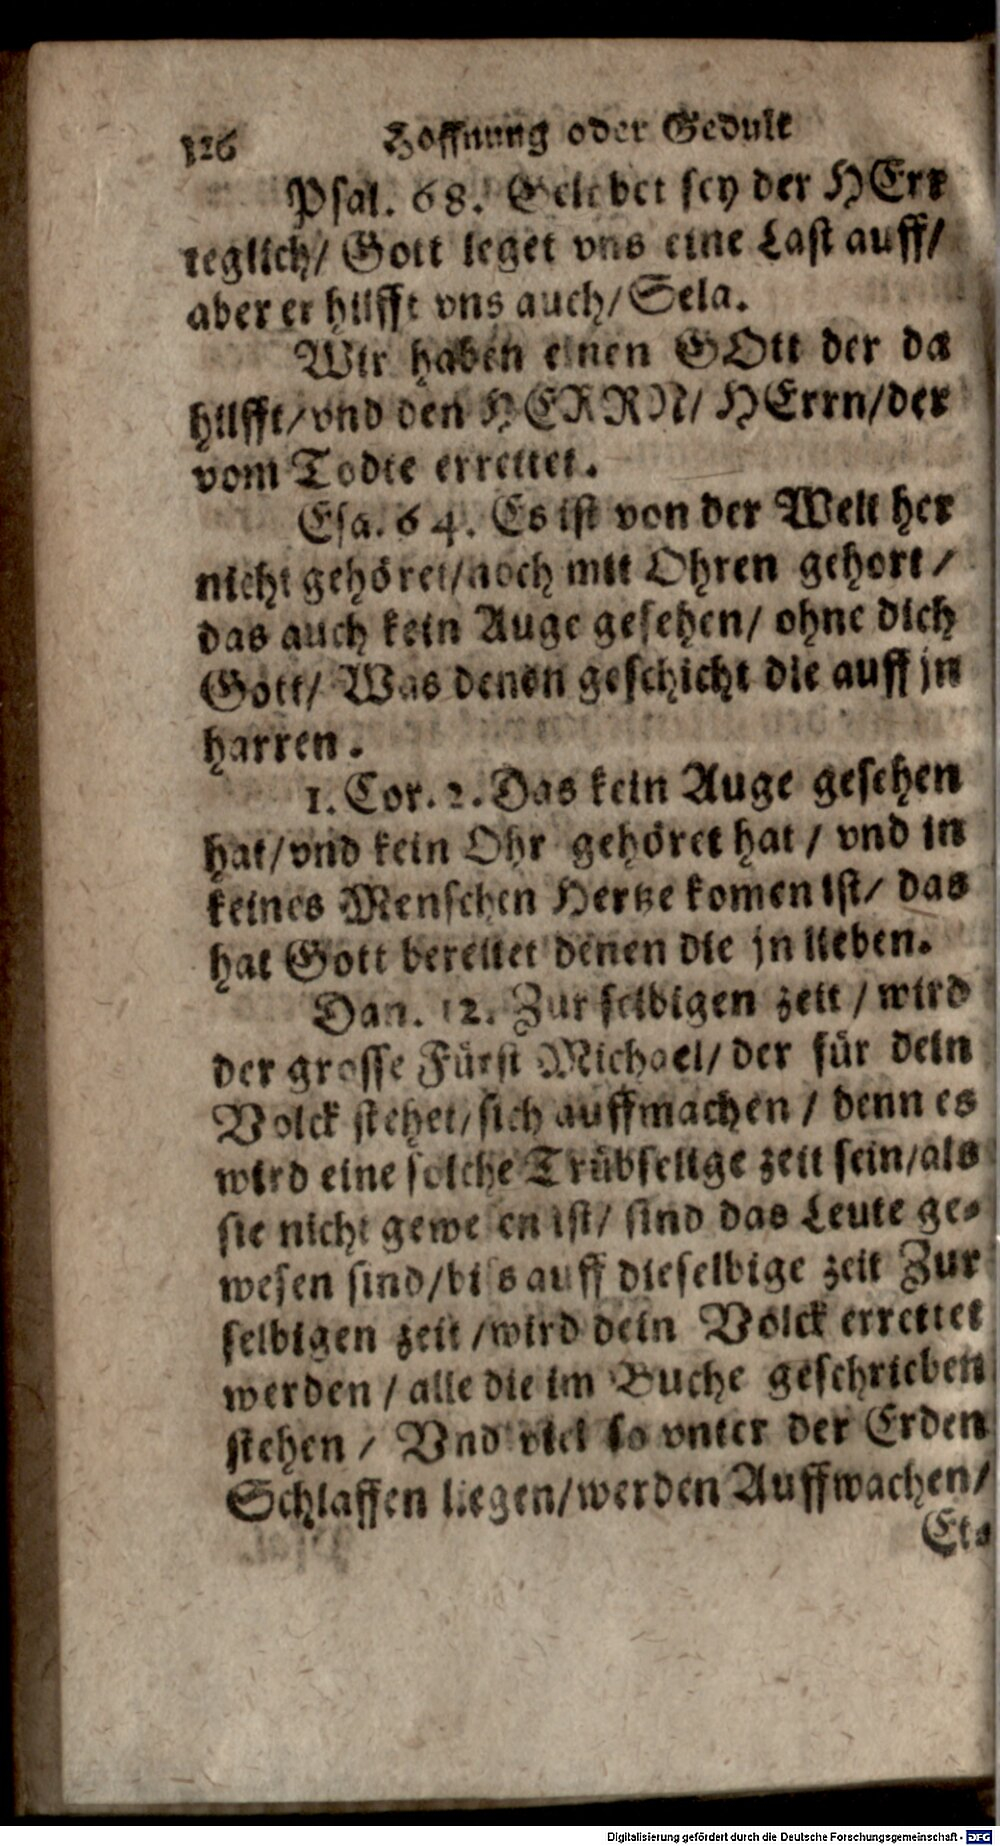 126 Hoffnung oder Gedult
Psal. 68. Gelobet sey der HErr
teglich/ Gott leget vns eine Last auff/
aber er hilfft vns auch/ Sela.
Wir haben einen GOtt der da
hilfft/vnd den HERRN/ HErrn/der
vom Todte errettet.
Esa. 64. Es ist von der Welt her
nicht gehöret/noch mit Ohren gehort/
das auch kein Auge gesehen/ ohne dich
Gott/ Was denen geschicht die auff jn
harren.
1. Cor. 2. Das kein Auge gesehen
hat/vnd kein Ohr gehöret hat / vnd in
keines Menschen Hertze komen ist/ das
hat Gott bereitet denen die jn lieben.
Dan. 12. Zur selbigen zeit / wird
der grosse Fürst Michael/ der für dein
Volck stehet/sich auffmachen / denn es
wird eine solche Trübselige zeit sein/als
sie nicht gewesen ist/ sind das Leute ge-
wesen sind/bis auff dieselbige zeit Zur
selbigen zeit /wird dein Volck errettet
werden / alle die im Buche geschrieben
stehen / Vnd viel so vnter der Erden
Schlaffen liegen/werden Auffwachen/
Et-
Digitalisierung gefördert durch die Deutsche Forschungsgemeinschaft - DFG